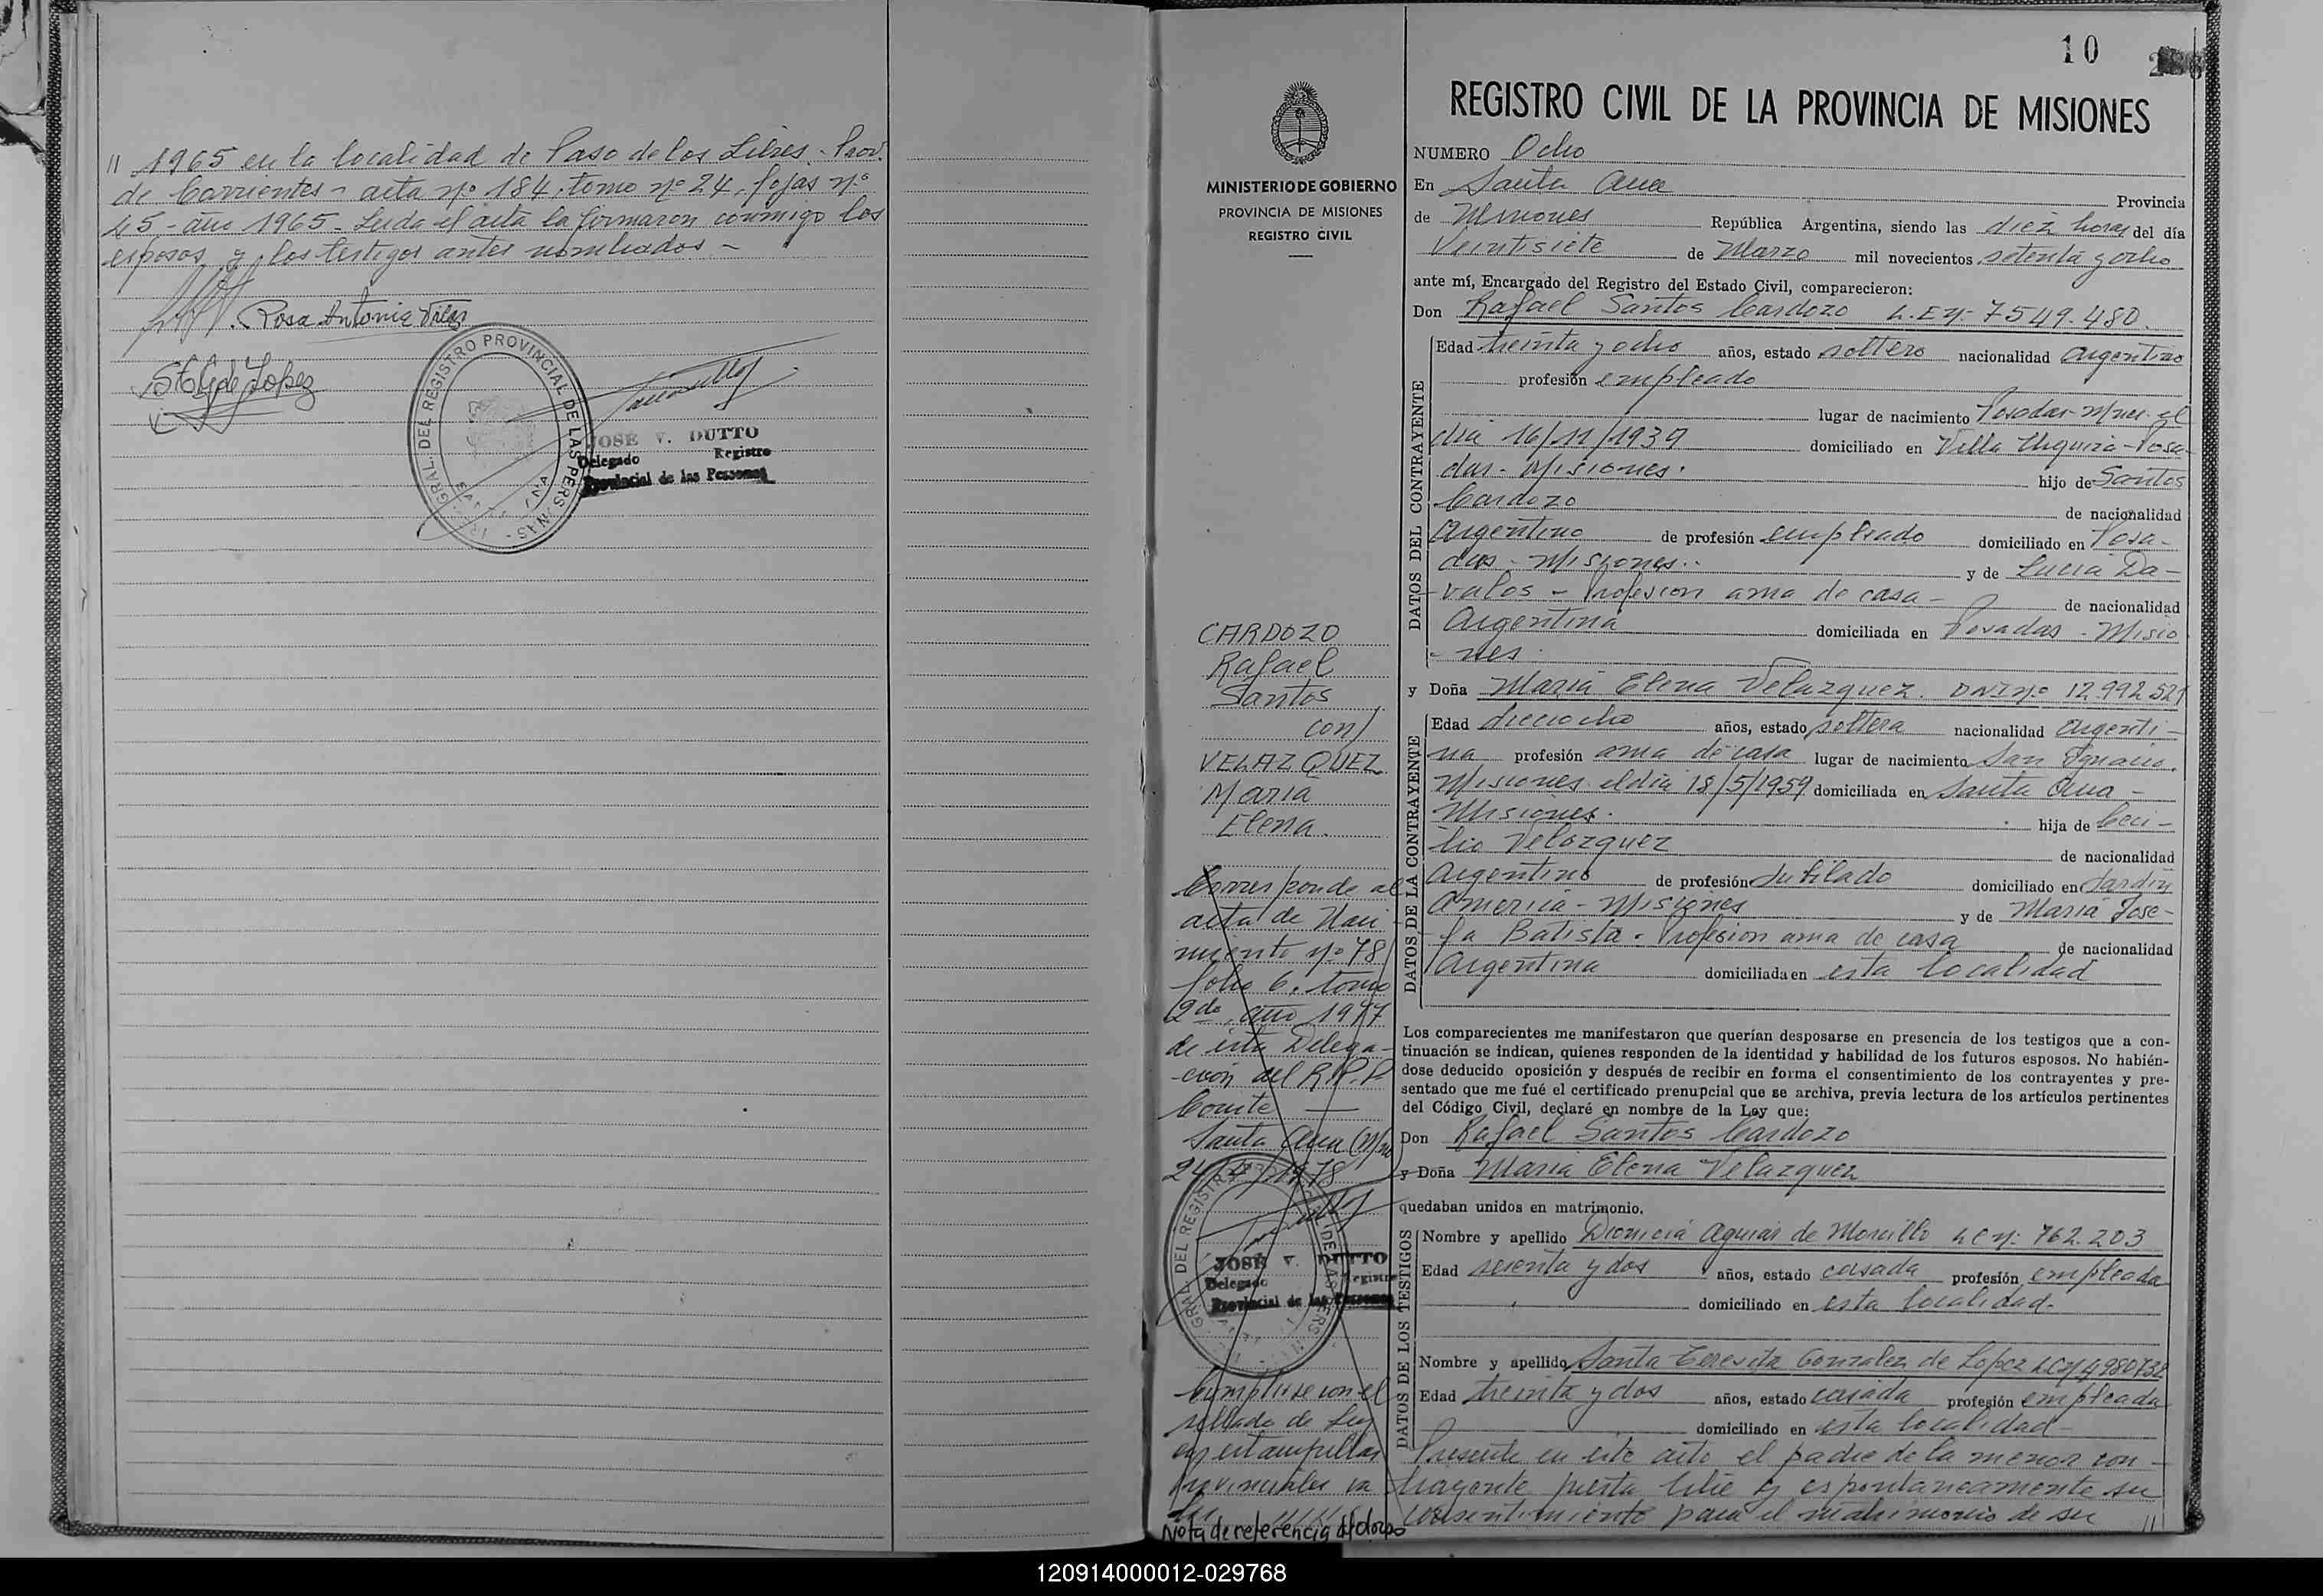 // 1965 en la localidad de Paso de los Libres - Prov.
de Corrientes - acta nº 184, tomo nº 24, fojas nº
45 - año 1965. Leida el acta la firmaron conmigo los
esposos y los testigos antes nombrados -
Rosa Antonia
S T G de Lopez
GRAL. DEL REGISTRO PROVINCIAL DE LAS PERSONAS
JOSE V. DUTTO
Delegado Registro
Provincial de las Personas
10
MINISTERIO DE GOBIERNO
PROVINCIA DE MISIONES
REGISTRO CIVIL
CARDOZO
Rafael
Santos
con/
VELAZQUEZ
Maria
Elena.
Corresponde al
acta de Naci
miento nº 78
folio 6, tomo
2do año 1977
de esta Delega-
cion del R.P.P.
Conste —
Santa Ana
JOSE V. DUTTO
Delegado Registro
Provincial de las Personas
Cumplise con el
sellado de Ley
en estampillas
provinciales
Nota de referencia al dorso
REGISTRO CIVIL DE LA PROVINCIA DE MISIONES
NUMERO Ocho
En Santa Ana Provincia
de Misiones República Argentina, siendo las diez horas del día
Veintisiete de Marzo mil novecientos setenta y ocho
ante mí, Encargado del Registro del Estado Civil, comparecieron:
Don Rafael Santos Cardozo L.E nº 7549.480.
DATOS DEL CONTRAYENTE
Edad treinta y ocho años, estado soltero nacionalidad argentino
profesión empleado
lugar de nacimiento Posadas-Mnes. el
dia 16/11/1939 domiciliado en Villa Urquiza-Posa-
das - Misiones. hijo de Santos
Cardozo de nacionalidad
Argentino de profesión empleado domiciliado en Posa-
das - Misiones.. y de Lucia Da-
valos - Profesion ama de casa - de nacionalidad
Argentina domiciliada en Posadas - Misio
- nes.
y Doña Maria Elena Velazquez. DNI nº 12.992.521
DATOS DE LA CONTRAYENTE
Edad dieciocho años, estado soltera nacionalidad Argenti-
na profesión ama de casa lugar de nacimiento San Ignacio.
Misiones el dia 18/5/1959 domiciliada en Santa Ana -
Misiones. hija de Ceci-
lio Velazquez de nacionalidad
Argentino de profesión Jubilado domiciliado en Jardin
America - Misiones y de Maria Jose-
fa Batista - Profesion ama de casa de nacionalidad
Argentina domiciliada en esta localidad
Los comparecientes me manifestaron que querían desposarse en presencia de los testigos que a con-
tinuación se indican, quienes responden de la identidad y habilidad de los futuros esposos. No habién-
dose deducido oposición y después de recibir en forma el consentimiento de los contrayentes y pre-
sentado que me fué el certificado prenupcial que se archiva, previa lectura de los artículos pertinentes
del Código Civil, declaré en nombre de la Ley que:
Don Rafael Santos Cardozo
y Doña Maria Elena Velazquez
quedaban unidos en matrimonio.
DATOS DE LOS TESTIGOS
Nombre y apellido Dionicia Aguiar de Morcillo LC nº: 762.203
Edad sesenta y dos años, estado casada profesión empleada
domiciliado en esta localidad.
Nombre y apellido Santa Teresita Gonzalez de Lopez LC nº
Edad treinta y dos años, estado casada profesión empleada
domiciliado en esta localidad
Presente en este acto el padre de la menor con-
trayente presta libre y espontaneamente su
consentimiento para el matrimonio de su //
120914000012-029768